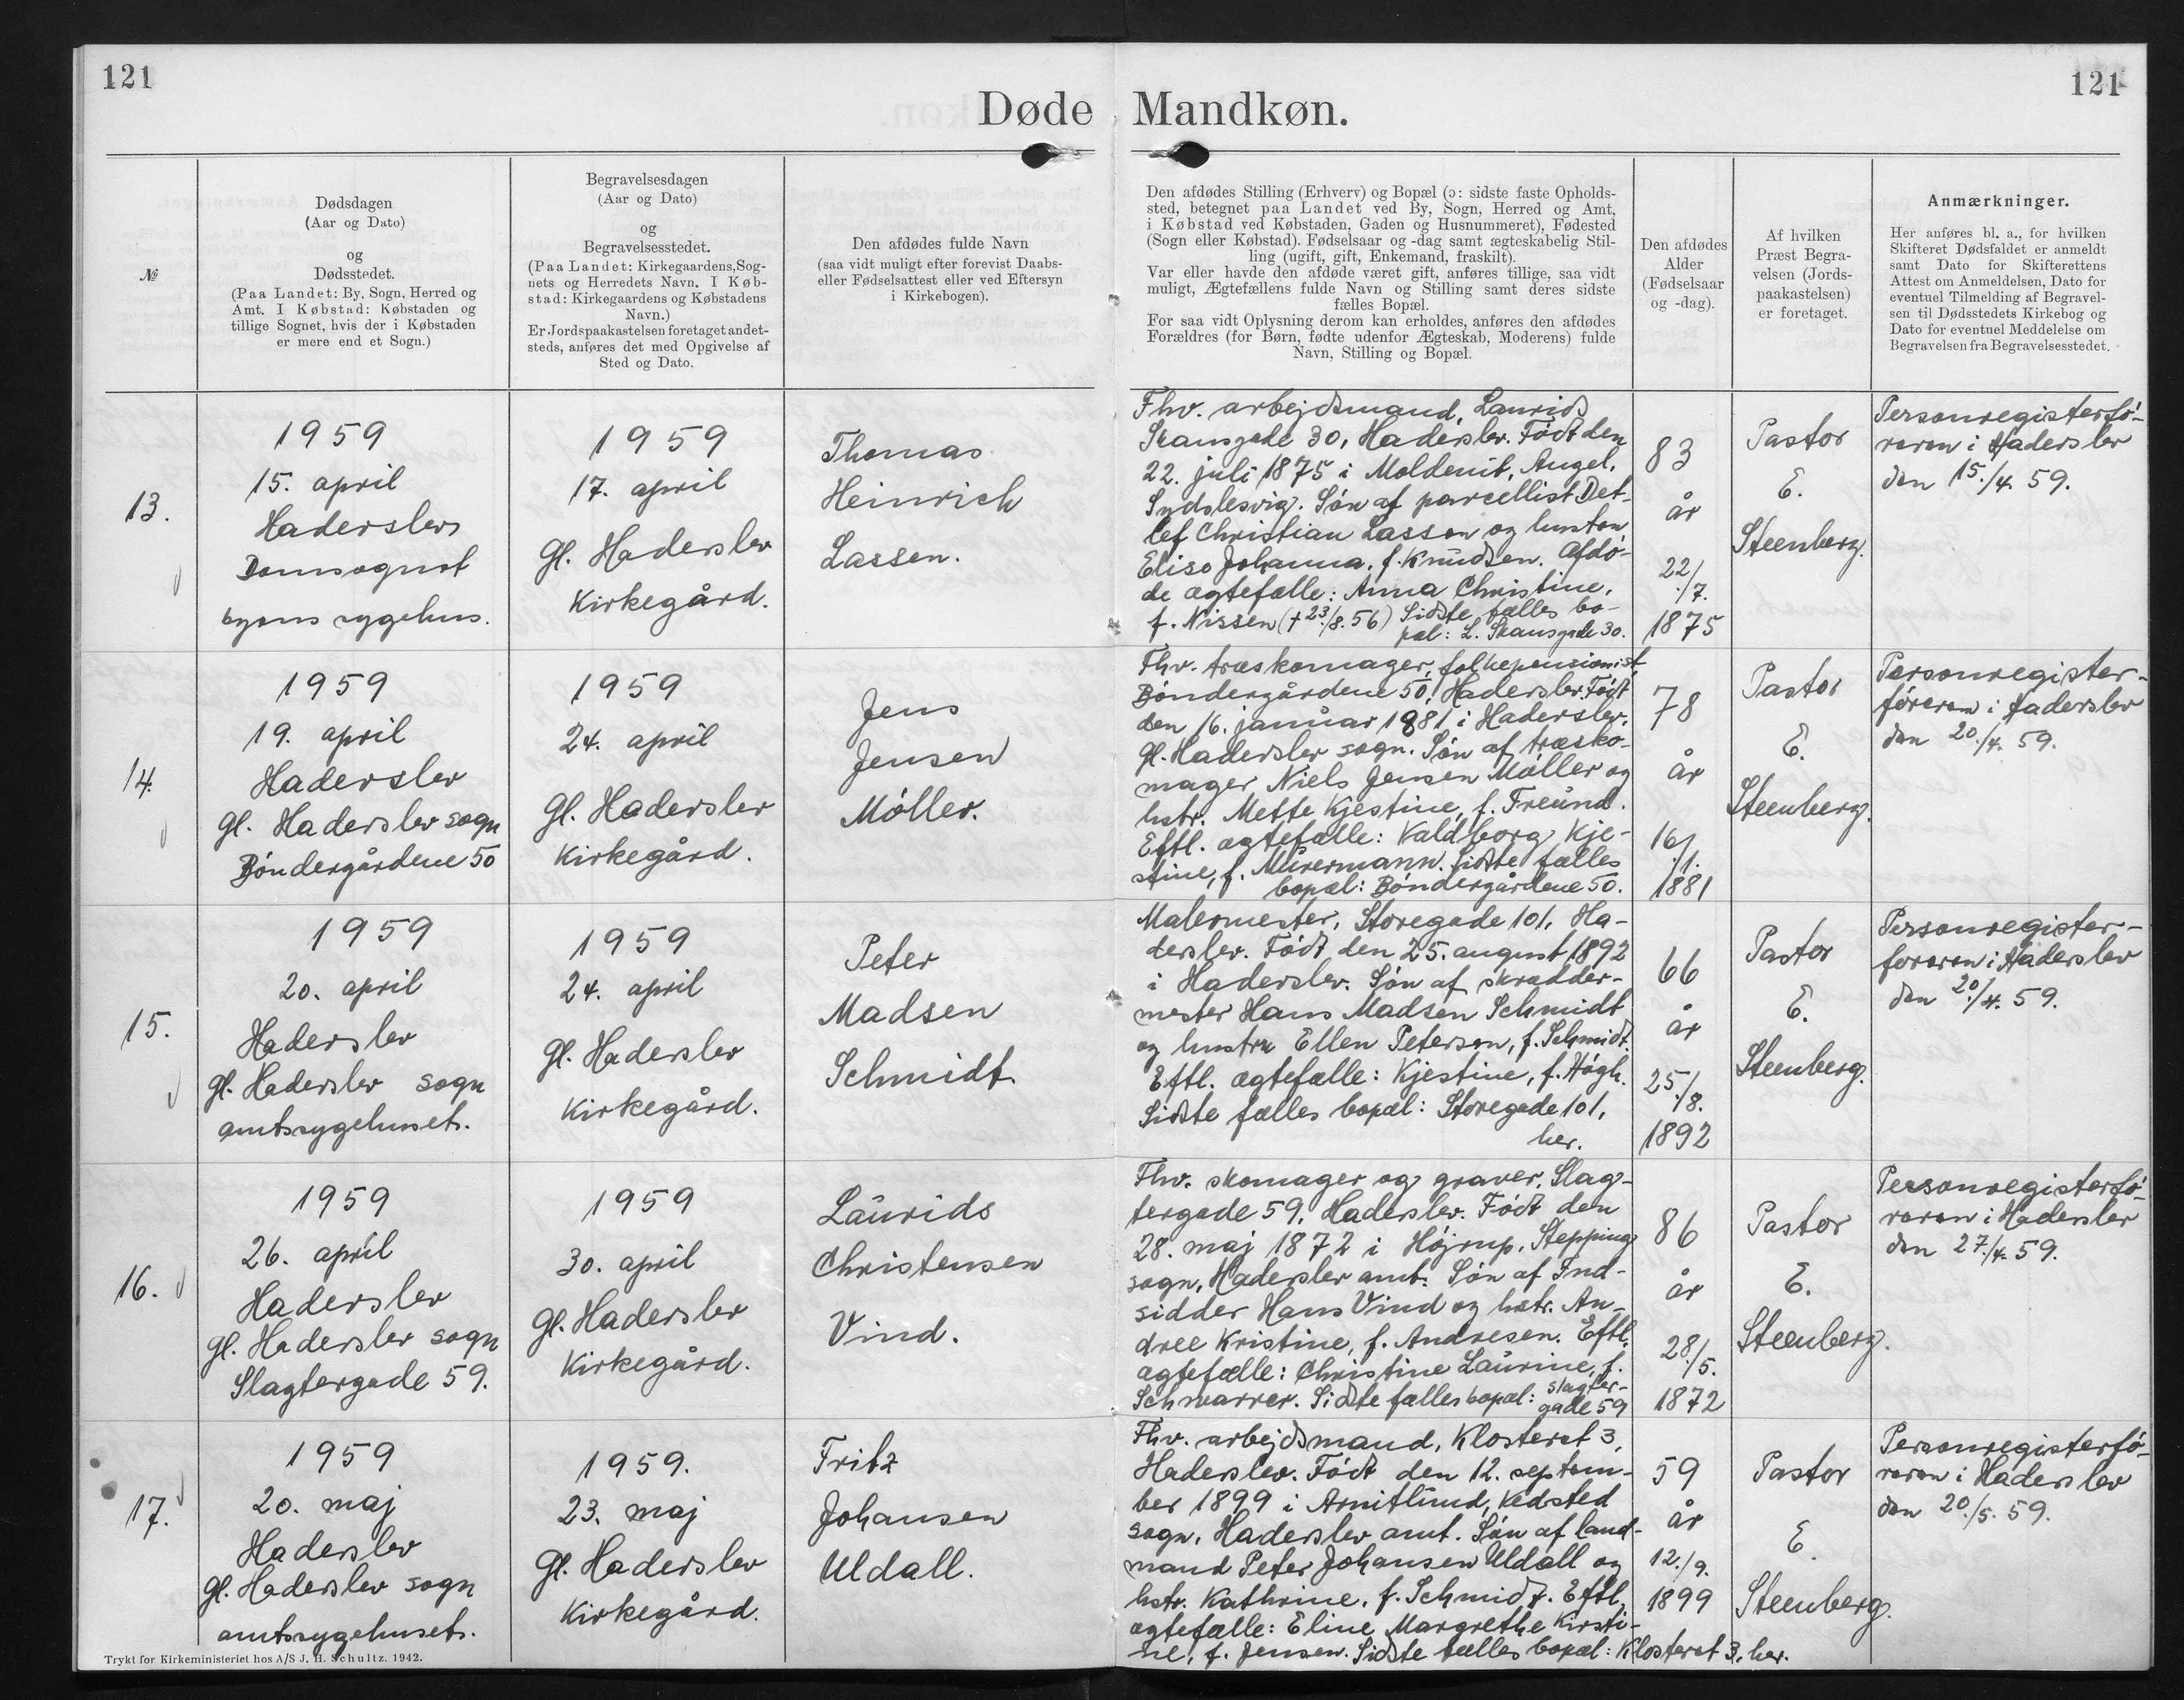 121
121
Døde Mandkøn.
№
Dødsdagen
(Aar og Dato)
og
Dødsstedet.
(Paa Landet: By, Sogn, Herred og
Amt. I Købstad: Købstaden og
tillige Sognet, hvis der i Købstaden
er mere end et Sogn.)
Begravelsesdagen
(Aar og Dato)
og
Begravelsesstedet.
(Paa Landet: Kirkegaardens, Sog-
nets og Herredets Navn. I Køb-
stad: Kirkegaardens og Købstadens
Navn.)
Er Jordspaakastelsen foretaget andet-
steds, anføres det med Opgivelse af
Sted og Dato.
Den afdødes fulde Navn
(saa vidt muligt efter forevist Daabs-
eller Fødselsattest eller ved Eftersyn
i Kirkebogen).
Den afdødes Stilling (Erhverv) og Bopæl (ɔ: sidste faste Opholds-
sted, betegnet paa Landet ved By, Sogn, Herred og Amt,
i Købstad ved Købstaden, Gaden og Husnummeret), Fødested
(Sogn eller Købstad). Fødselsaar og -dag samt ægteskabelig Stil-
ling (ugift, gift, Enkemand, fraskilt).
Var eller havde den afdøde været gift, anføres tillige, saa vidt
muligt, Ægtefællens fulde Navn og Stilling samt deres sidste
fælles Bopæl.
For saa vidt Oplysning derom kan erholdes, anføres den afdødes
Forældres (for Børn, fødte udenfor Ægteskab, Moderens) fulde
Navn, Stilling og Bopæl.
Den afdødes
Alder
(Fødselsaar
og -dag).
Af hvilken
Præst Begra-
velsen (Jords-
paakastelsen)
er foretaget.
Anmærkninger.
Her anføres bl. a., for hvilken
Skifteret Dødsfaldet er anmeldt
samt Dato for Skifterettens
Attest om Anmeldelsen, Dato for
eventuel Tilmelding af Begravel-
sen til Dødsstedets Kirkebog og
Dato for eventuel Meddelelse om
Begravelsen fra Begravelsesstedet.
13.
1959
15. april
Haderslev
Domsognet
byens sygehus.
1959
17. april
Gl. Haderslev
Kirkegård.
Thomas
Heinrich
Lassen.
Fhv. arbejdsmand, Laurids
Skausgade 30, Haderslev. Født den
22. juli 1875 i Moldenit, Angel,
Sydslesvig. Søn af parcellist Det-
lef Christian Lassen og hustru
Elise Johanna, f. Knudsen. Afdø-
de ægtefælle: Anna Christine,
f. Nissen († 23./8. 56) Sidste fælles bo-
pæl: L. Skausgade 30.
83
år
22./7.
1875
Pastor
E.
Steenberg.
Personregisterfø-
reren i Haderslev
den 15./4. 59.
14.
1959
19. april
Haderslev
Gl. Haderslev sogn
Bøndergårdene 50
1959
24. april
Gl. Haderslev
Kirkegård.
Jens
Jensen
Møller.
Fhv. træskomager, folkepensionist,
Bøndergårdene 50, Haderslev. Født
den 16. januar 1881 i Haderslev,
gl. Haderslev sogn. Søn af træsko-
mager Niels Jensen Møller og
hstr. Mette Kjestine, f. Freund.
Eftl. ægtefælle: Valdborg Kje-
stine, f. Mürermann. Sidste fælles
bopæl: Bøndergårdene 50.
78
år
16/.1.
1881
Pastor
E.
Steenberg.
Personregister-
føreren i Haderslev
den 20./4. 59.
15.
1959
20. april
Haderslev
Gl. Haderslev sogn
amtssygehuset.
1959
24. april
Gl. Haderslev
Kirkegård.
Peter
Madsen
Schmidt
Malermester, Storegade 101, Ha-
derslev. Født den 25. august 1892
i Haderslev. Søn af skrædder-
mester Hans Madsen Schmidt
og hustru Ellen Petersen, f. Schmidt.
Eftl. ægtefælle: Kjestine, f. Høgh.
Sidste fælles bopæl: Storegade 101,
her.
66
år
25./8.
1892
Pastor
E.
Steenberg.
Personregister-
føreren i Haderslev
den 20./4. 59.
16.
1959
26. april
Haderslev
Gl. Haderslev sogn
Slagtergade 59.
1959
30. april
Gl. Haderslev
Kirkegård.
Laurids
Christensen
Vind.
Fhv. skomager og graver, Slag-
tergade 59, Haderslev. Født den
28. maj 1872 i Højrup, Stepping
sogn, Haderslev amt. Søn af Ind-
sidder Hans Vind og hstr. An-
dree Kristine, f. Andresen. Eftl.
ægtefælle: Christine Laurine, f.
Schwarrer. Sidste fælles bopæl: Slagter-
gade 59
86
år
28./5.
1872
Pastor
E.
Steenberg.
Personregisterfø-
reren i Haderslev
den 27./4. 59.
17.
1959
20. maj
Haderslev
Gl. Haderslev sogn
amtssygehuset.
1959.
23. maj
Gl. Haderslev
Kirkegård.
Fritz
Johansen
Uldall.
Fhv. arbejdsmand, Klosteret 3,
Haderslev. Født den 12. septem-
ber 1899 i Arnitlund, Vedsted
sogn, Haderslev amt. Søn af land-
mand Peter Johansen Uldall og
hstr. Kathrine, f. Schmidt. Eftl.
ægtefælle: Eline Margrethe Kirsti-
ne, f. Jensen. Sidste fælles bopæl: Klosteret 3, her.
59
år
12./9.
1899
Pastor
E.
Steenberg.
Personregisterfø-
reren i Haderslev
den 20./5. 59.
Trykt for Kirkeministeriet hos A/S J. H. Schultz. 1942.